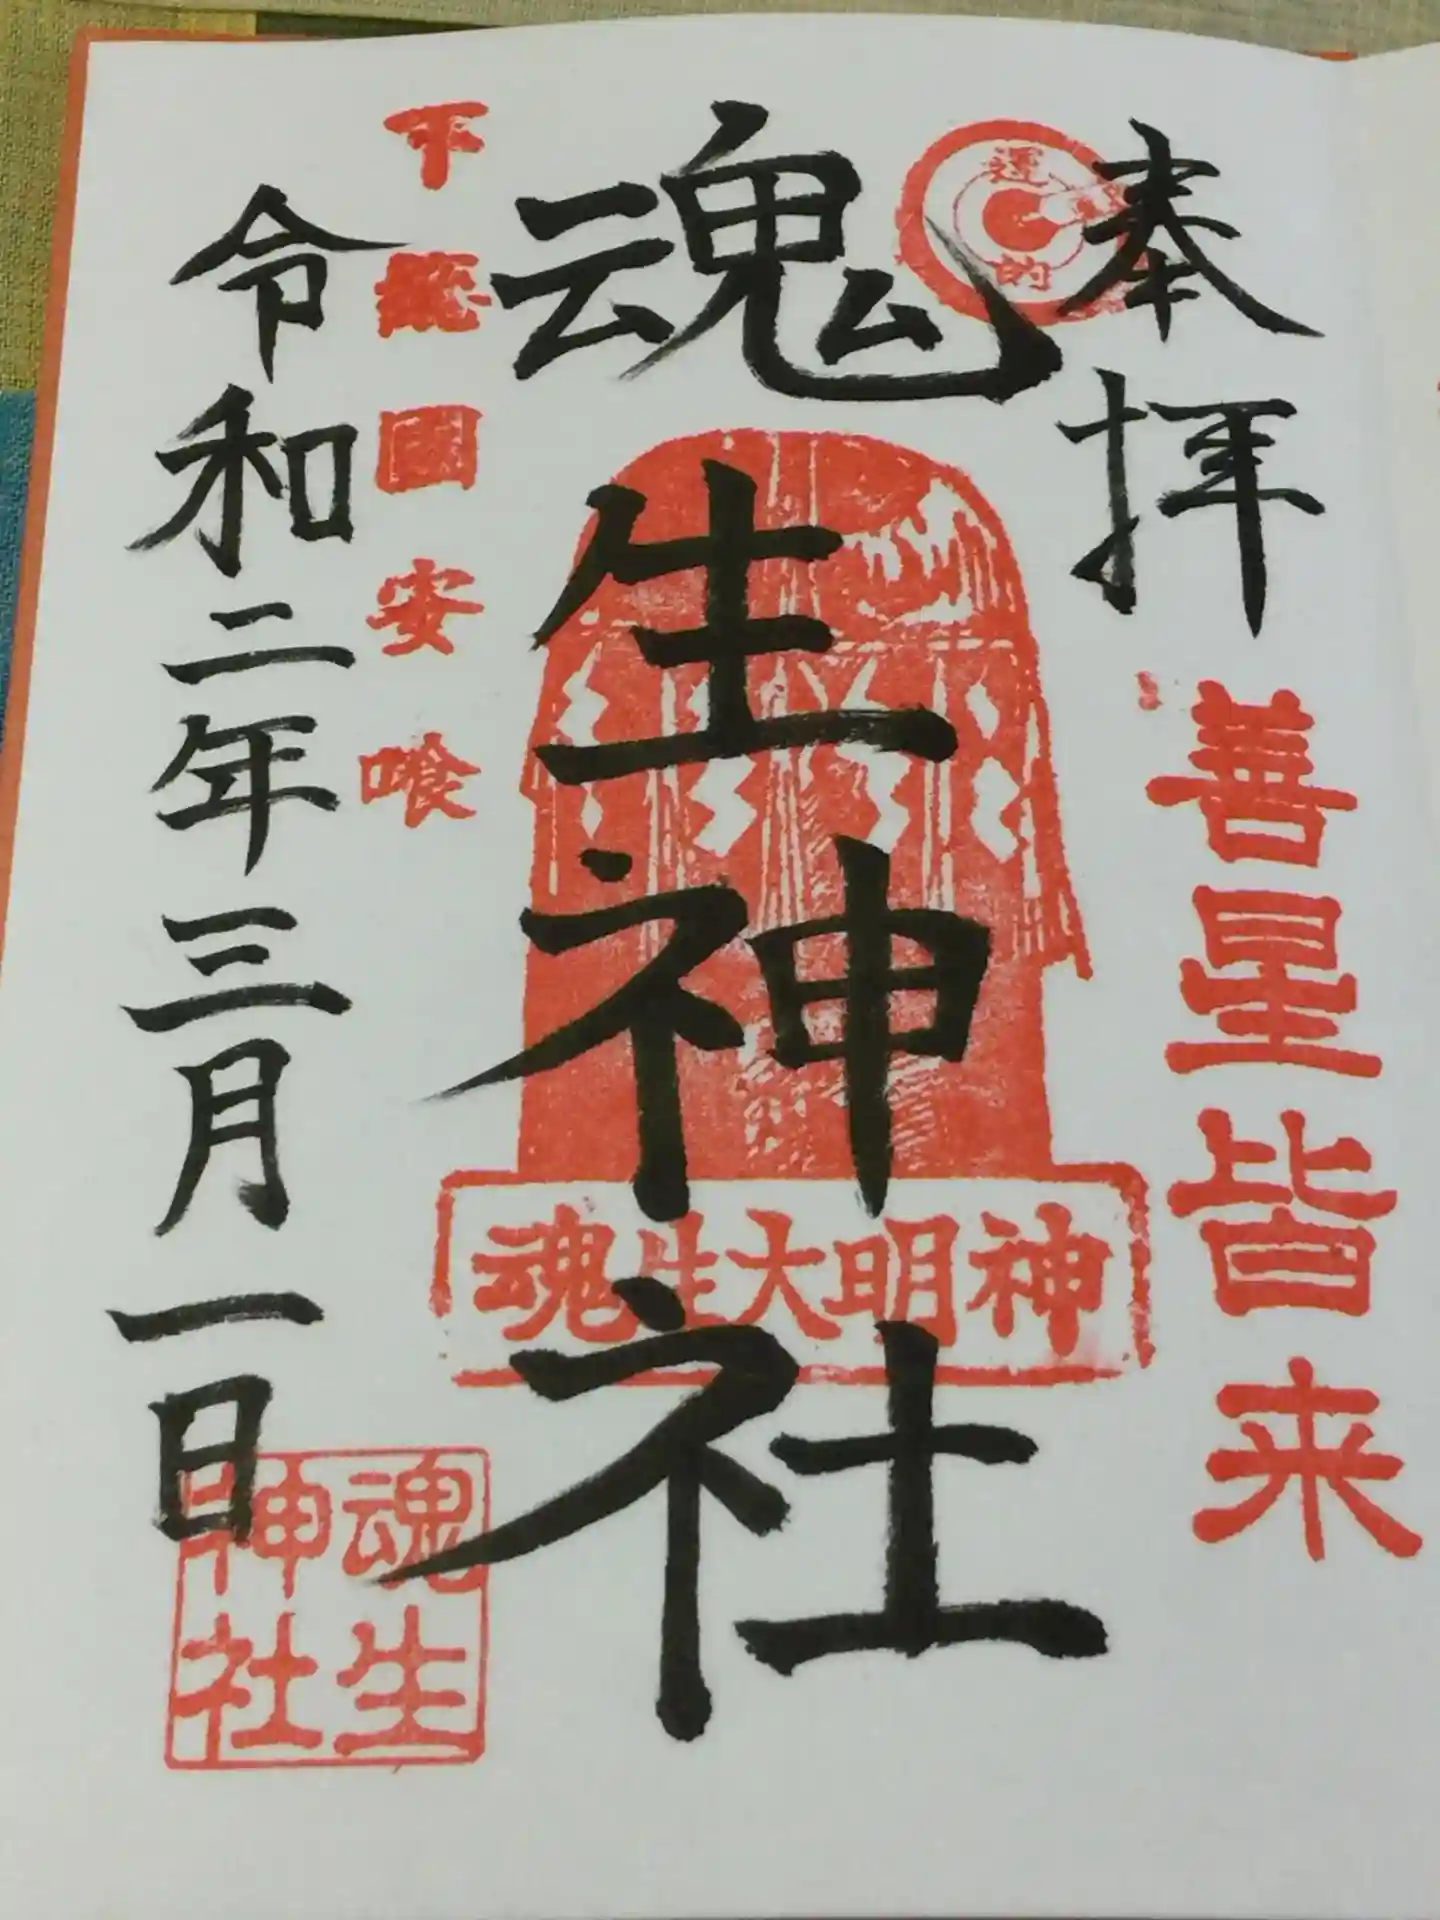 奉拝
善星皆来
運
的
魂生神社
魂生大明神
下総國安喰
令和二年三月一日
魂生
神社